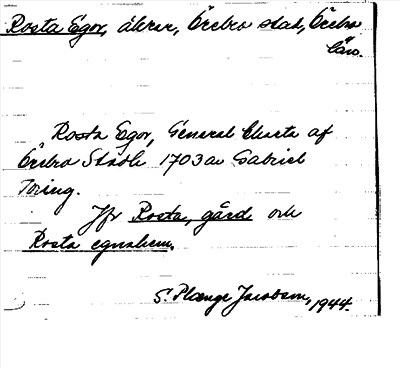 Rosta Egor, åkrar, Örebro stad, Örebro
län.
Rosta Egor, General Charta af
Örebro Stadh 1703 av Gabriel
Toring.
Jfr Rosta, gård och
Rosta egnahem.
S. Plænge Jacobson, 1944.